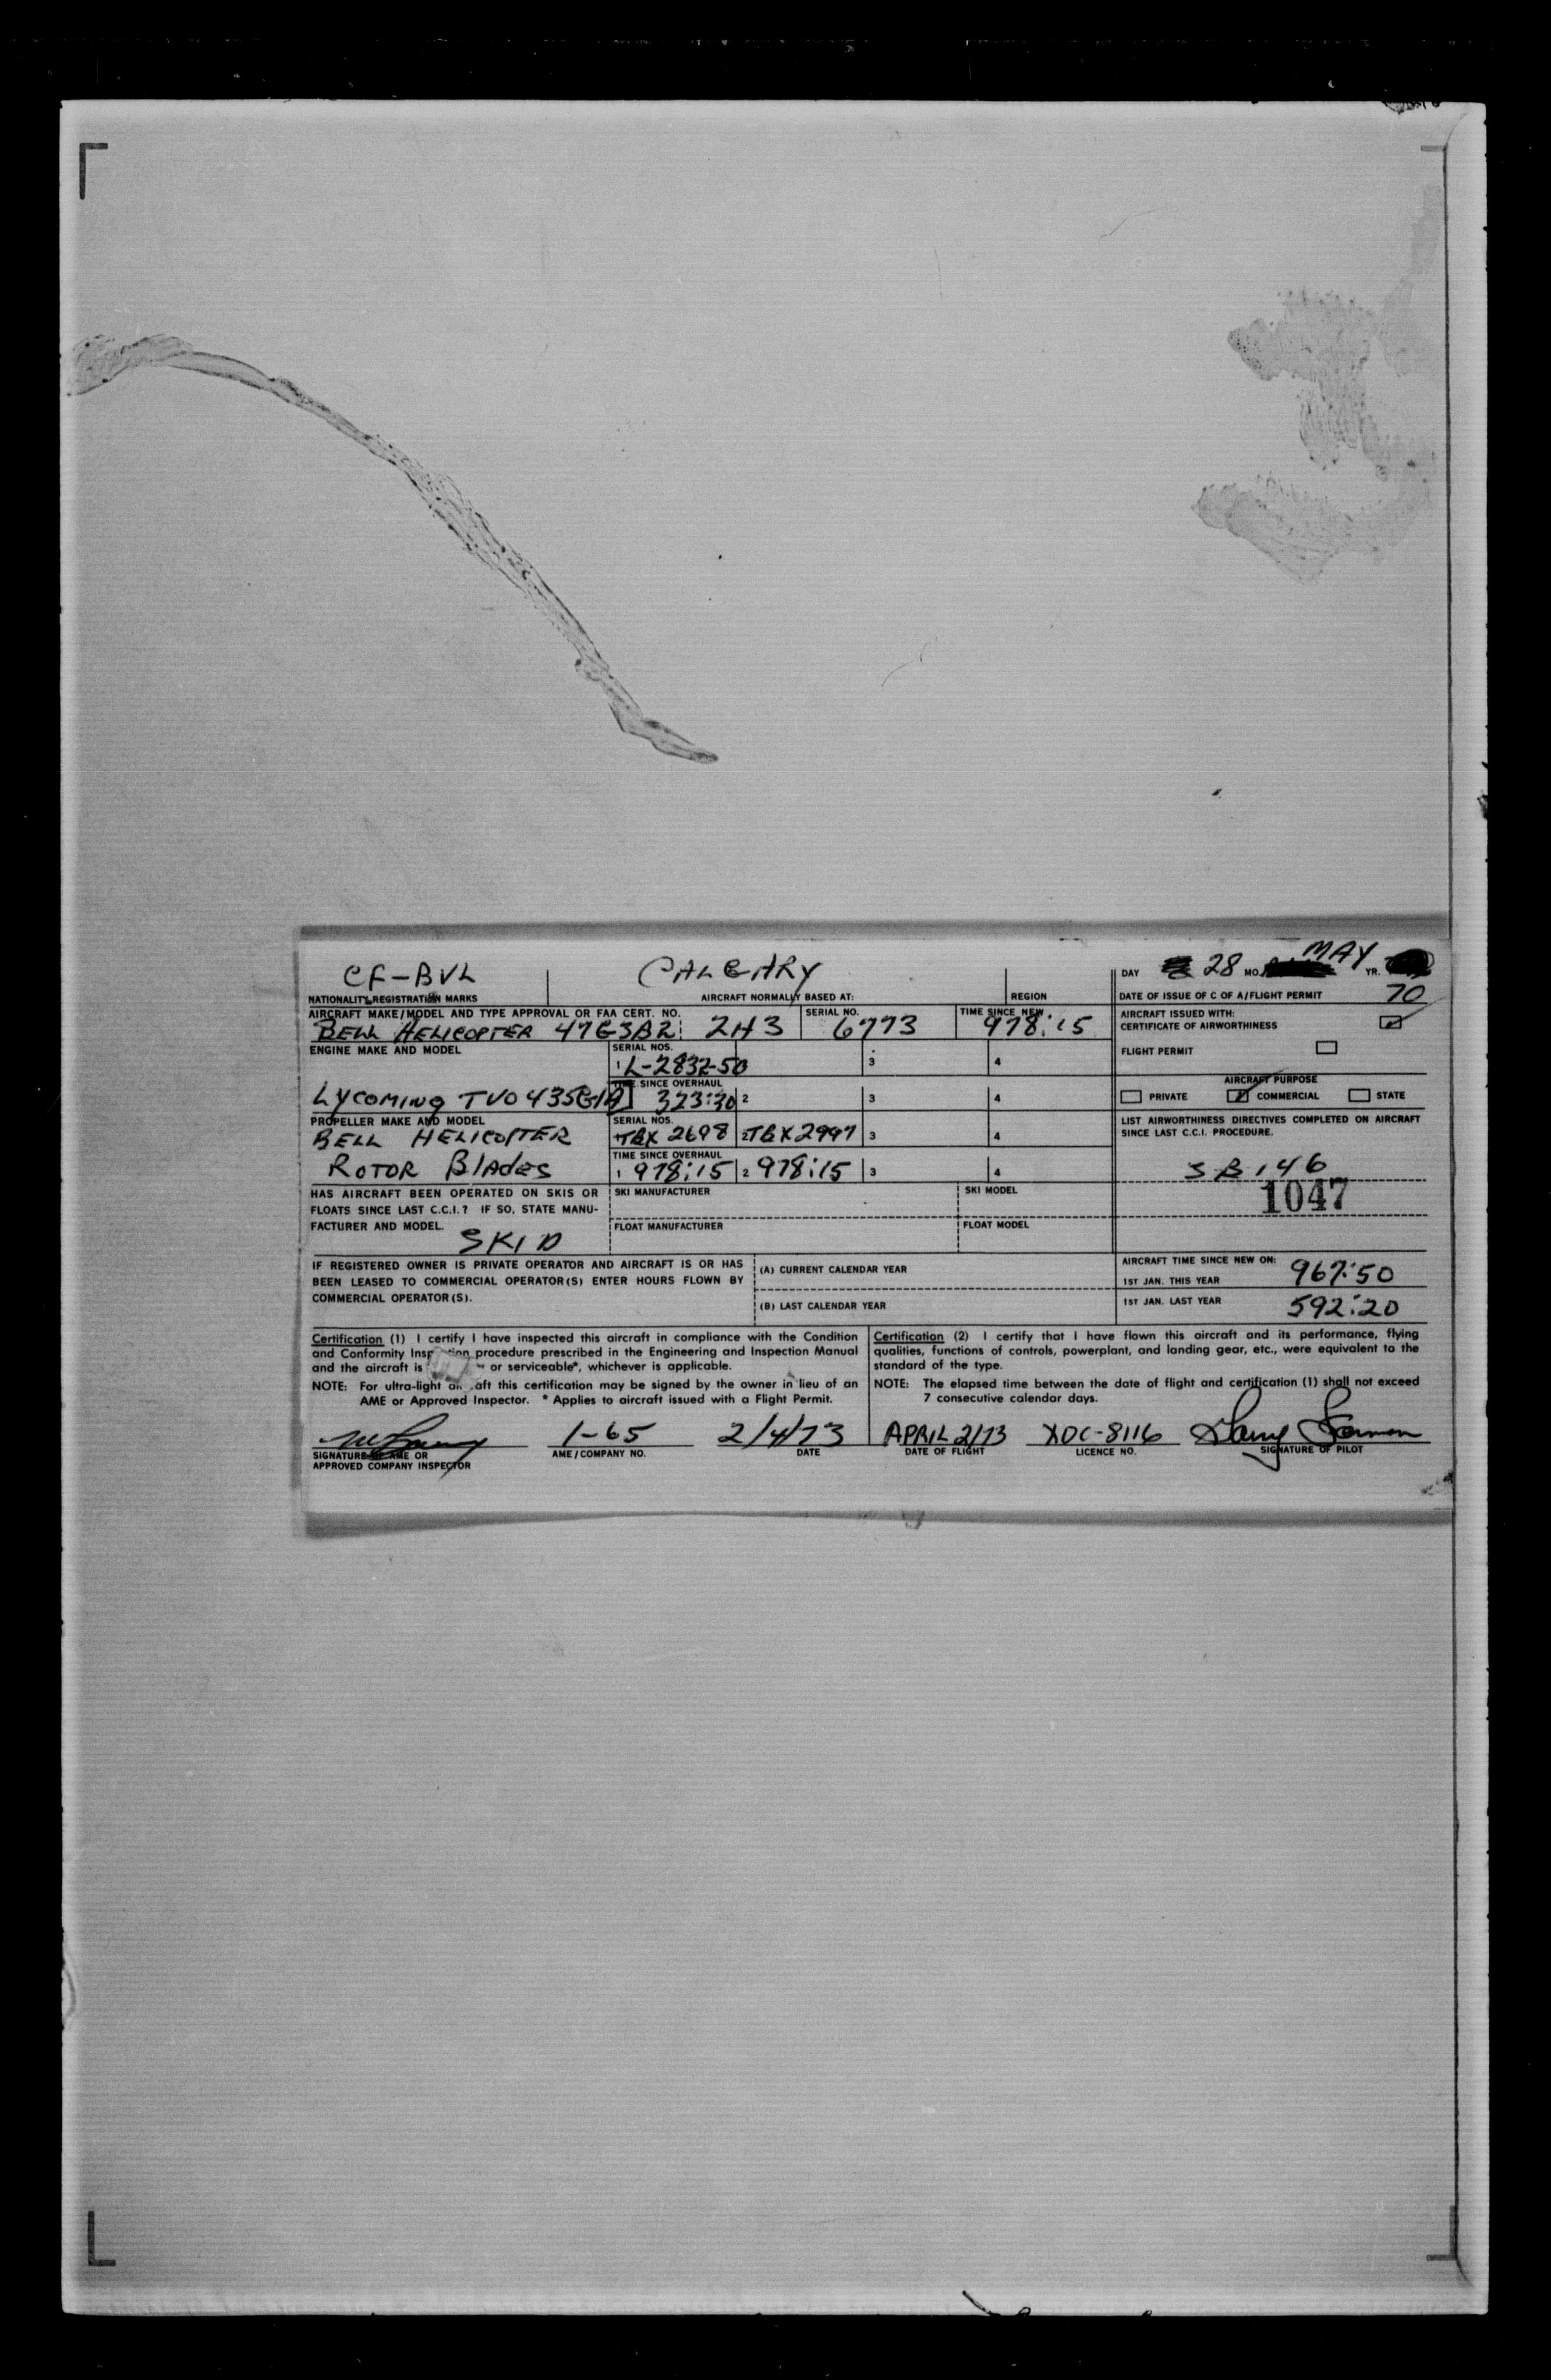 CF-BVL CALGARY DAY 28 MO. MAY YR.
NATIONALITY REGISTRATION MARKS AIRCRAFT NORMALLY BASED AT: REGION DATE OF ISSUE OF C OF A/FLIGHT PERMIT 70
AIRCRAFT MAKE/MODEL AND TYPE APPROVAL OR FAA CERT. NO. SERIAL NO. TIME SINCE NEW
BELL HELICOPTER 47G3B2 2H3 6773 978:15
AIRCRAFT ISSUED WITH:
CERTIFICATE OF AIRWORTHINESS
FLIGHT PERMIT
ENGINE MAKE AND MODEL SERIAL NOS.
1 L-2832-50 3 4
TIME SINCE OVERHAUL
LYCOMING TVO435G1A 323:30 2 3 4
AIRCRAFT PURPOSE
PRIVATE COMMERCIAL STATE
PROPELLER MAKE AND MODEL SERIAL NOS.
BELL HELICOPTER TBX 2698 2 TBX2997 3 4
TIME SINCE OVERHAUL
ROTOR BlAdes 1 978:15 2 978:15 3 4
LIST AIRWORTHINESS DIRECTIVES COMPLETED ON AIRCRAFT
SINCE LAST C.C.I. PROCEDURE.
SB 146
1047
HAS AIRCRAFT BEEN OPERATED ON SKIS OR
FLOATS SINCE LAST C.C.I.? IF SO, STATE MANU-
FACTURER AND MODEL.
SKID
SKI MANUFACTURER SKI MODEL
FLOAT MANUFACTURER FLOAT MODEL
IF REGISTERED OWNER IS PRIVATE OPERATOR AND AIRCRAFT IS OR HAS
BEEN LEASED TO COMMERCIAL OPERATOR(S) ENTER HOURS FLOWN BY
COMMERCIAL OPERATOR(S).
(A) CURRENT CALENDAR YEAR
(B) LAST CALENDAR YEAR
AIRCRAFT TIME SINCE NEW ON:
1ST JAN. THIS YEAR 967:50
1ST JAN. LAST YEAR 592:20
Certification (1) I certify I have inspected this aircraft in compliance with the Condition
and Conformity Inspection procedure prescribed in the Engineering and Inspection Manual
and the aircraft is or serviceable*, whichever is applicable.
NOTE: For ultra-light aircraft this certification may be signed by the owner in lieu of an
AME or Approved Inspector. * Applies to aircraft issued with a Flight Permit.
Certification (2) I certify that I have flown this aircraft and its performance, flying
qualities, functions of controls, powerplant, and landing gear, etc., were equivalent to the
standard of the type.
NOTE: The elapsed time between the date of flight and certification (1) shall not exceed
7 consecutive calendar days.
1-65 2/4/73 APRIL 2/73 XDC-8116
SIGNATURE OF AME OR AME/COMPANY NO. DATE DATE OF FLIGHT LICENCE NO. SIGNATURE OF PILOT
APPROVED COMPANY INSPECTOR